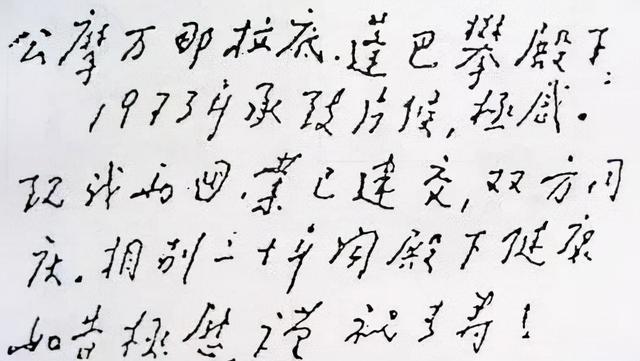 公摩万那拉底.蓬巴攀殿下:
1973年承致片候,極感。
现我两国.業已建交,双方同
庆。相别二十年闻殿下健康
如昔極慰谨祝寿!